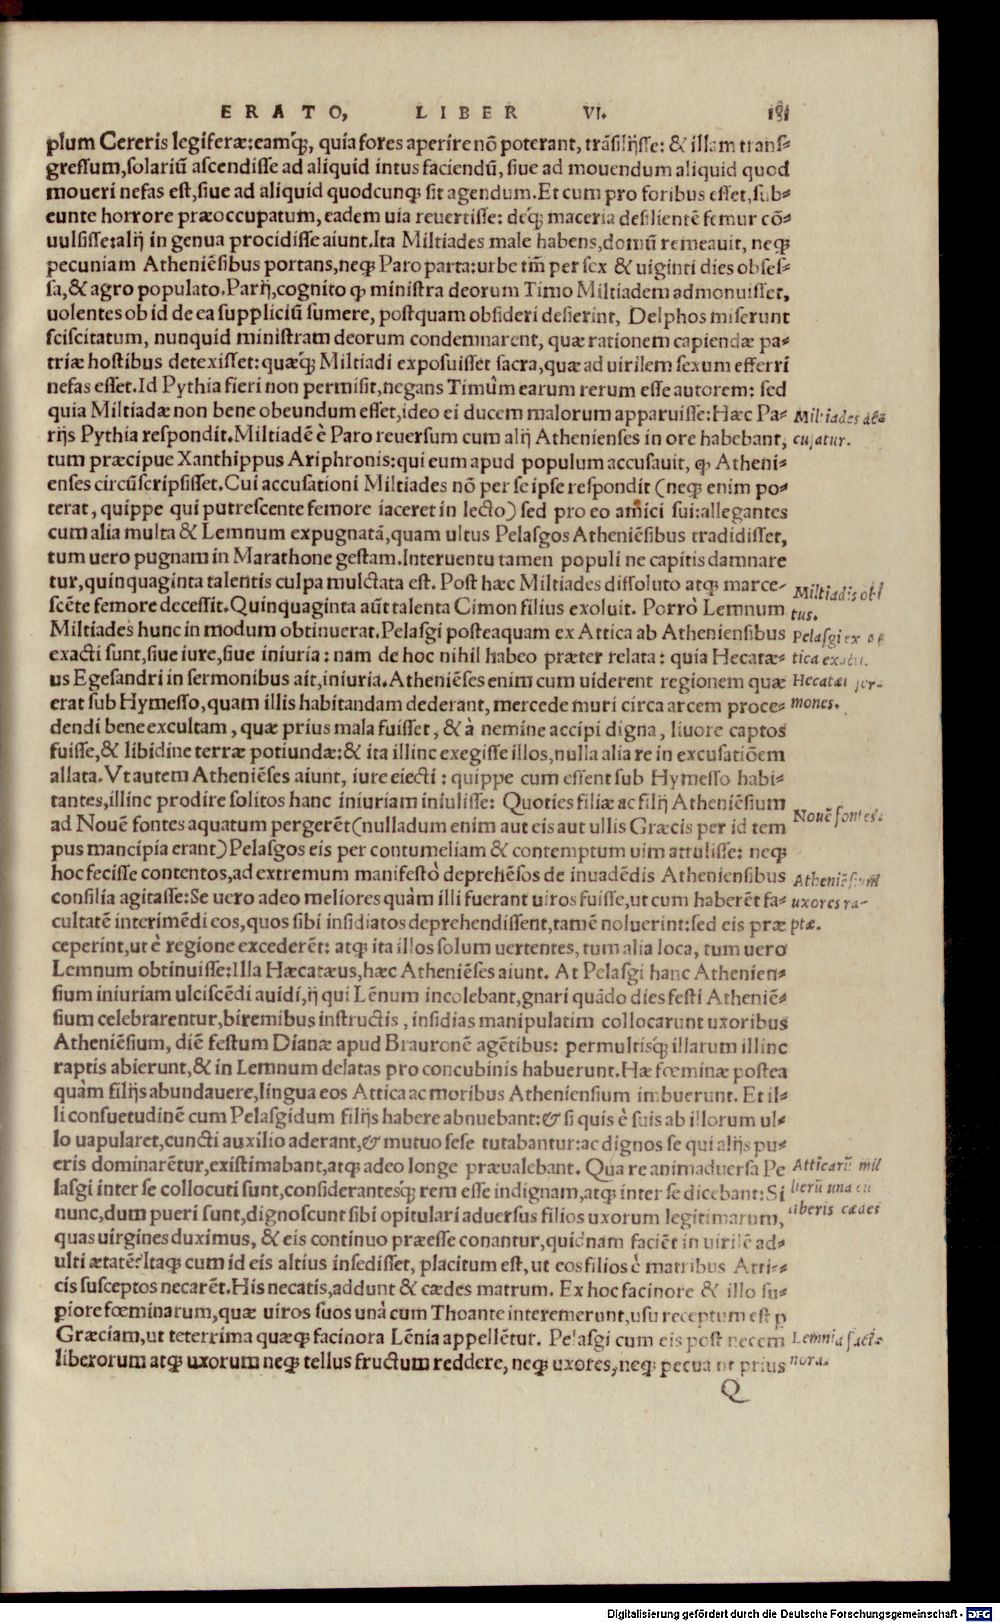 ERATO, LIBER VI. 181
plum Cereris legiferæ: eamq́ꝫ, quia fores aperire nō poterant, trāsilijsse: & illam trans-
gressum, solariū ascendisse ad aliquid intus faciendū, siue ad mouendum aliquid quod
moueri nefas est, siue ad aliquid quodcunqꝫ sit agendum. Et cum pro foribus esset, sub-
eunte horrore præoccupatum, eadem uia reuertisse: deq́ꝫ maceria desilientē femur cō-
uulsisse: alij in genua procidisse aiunt. Ita Miltiades male habens, domū remeauit, neqꝫ
pecuniam Atheniēsibus portans, neqꝫ Paro parta: urbe tm̄ per sex & uiginti dies obses-
sa, & agro populato. Parij, cognito ꝙ ministra deorum Timo Miltiadem admonuisset,
uolentes ob id de ea suppliciū sumere, postquam obsideri desierint, Delphos miserunt
sciscitatum, nunquid ministram deorum condemnarent, quæ rationem capiendæ pa-
triæ hostibus detexisset: quæq́ꝫ Miltiadi exposuisset sacra, quæ ad uirilem sexum efferri
nefas esset. Id Pythia fieri non permisit, negans Timûm earum rerum esse autorem: sed
quia Miltiadæ non bene obeundum esset, ideo ei ducem malorum apparuisse: Hæc Pa-
rijs Pythia respondit. Miltiadē è Paro reuersum cum alij Athenienses in ore habebant,
tum præcipue Xanthippus Ariphronis: qui eum apud populum accusauit, ꝙ Atheni-
enses circūscripsisset. Cui accusationi Miltiades nō per se ipse respondit (neqꝫ enim po-
terat, quippe qui putrescente femore iaceret in lecto) sed pro eo amici sui: allegantes
cum alia multa & Lemnum expugnatā, quam ultus Pelasgos Atheniēsibus tradidisset,
tum uero pugnam in Marathone gestam. Interuentu tamen populi ne capitis damnare
tur, quinquaginta talentis culpa mulctata est. Post hæc Miltiades dissoluto atqꝫ marce-
scēte femore decessit. Quinquaginta aūt talenta Cimon filius exoluit. Porrò Lemnum
Miltiades hunc in modum obtinuerat. Pelasgi posteaquam ex Attica ab Atheniensibus
exacti sunt, siue iure, siue iniuria: nam de hoc nihil habeo præter relata: quia Hecatæ-
us Egesandri in sermonibus ait, iniuria. Atheniēses enim cum uiderent regionem quæ
erat sub Hymesso, quam illis habitandam dederant, mercede muri circa arcem proce-
dendi bene excultam, quæ prius mala fuisset, & à nemine accipi digna, liuore captos
fuisse, & libidine terræ potiundæ: & ita illinc exegisse illos, nulla alia re in excusatiōem
allata. Vt autem Atheniēses aiunt, iure eiecti: quippe cum essent sub Hymesso habi-
tantes, illinc prodire solitos hanc iniuriam intulisse: Quoties filiæ ac filij Atheniēsium
ad Nouē fontes aquatum pergerēt (nulladum enim aut eis aut ullis Græcis per id tem
pus mancipia erant) Pelasgos eis per contumeliam & contemptum uim attulisse: neqꝫ
hoc fecisse contentos, ad extremum manifestò deprehēsos de inuadēdis Atheniensibus
consilia agitasse: Se uero adeo meliores quàm illi fuerant uiros fuisse, ut cum haberēt fa-
cultatē interimēdi eos, quos sibi insidiatos deprehendissent, tamē noluerint: sed eis præ
ceperint, ut è regione excederēt: atqꝫ ita illos solum uertentes, tum alia loca, tum uero
Lemnum obtinuisse: Illa Hæcatæus, hæc Atheniēses aiunt. At Pelasgi hanc Athenien-
sium iniuriam ulciscēdi auidi, ij qui Lēnum incolebant, gnari quādo dies festi Atheniē-
sium celebrarentur, biremibus instructis, insidias manipulatim collocarunt uxoribus
Atheniēsium, diē festum Dianæ apud Brauronē agētibus: permultisq́ꝫ illarum illinc
raptis abierunt, & in Lemnum delatas pro concubinis habuerunt. Hæ fœminæ postea
quàm filijs abundauere, lingua eos Attica ac moribus Atheniensium imbuerunt. Et il-
li consuetudinē cum Pelasgidum filijs habere abnuebant: & si quis è suis ab illorum ul-
lo uapularet, cuncti auxilio aderant, & mutuo sese tutabantur: ac dignos se qui alijs pu-
eris dominarētur, existimabant, atqꝫ adeo longe præualebant. Qua re animaduersa Pe
lasgi inter se collocuti sunt, considerantesq́ꝫ rem esse indignam, atqꝫ inter se dicebant: Si
nunc, dum pueri sunt, dignoscunt sibi opitulari aduersus filios uxorum legitimarum,
quas uirgines duximus, & eis continuo præesse conantur, quidnam faciēt in uirilē ad-
ulti ætatē? Itaqꝫ cum id eis altius insedisset, placitum est, ut eos filios è matribus Atti-
cis susceptos necarēt. His necatis, addunt & cædes matrum. Ex hoc facinore & illo su-
piore fœminarum, quæ uiros suos unà cum Thoante interemerunt, usu receptum est ꝑ
Græciam, ut teterrima quæqꝫ facinora Lēnia appellētur. Pelasgi cum eis post necem
liberorum atqꝫ uxorum neqꝫ tellus fructum reddere, neqꝫ uxores, neqꝫ pecua ut prius
Q
Miltiades
cusatur.
Miltiadis obi
tus.
Pelasgi ex
tica exacti.
Hecatæi ser-
mones.
Nouē fontes.
Atheniēsium
uxores ra-
ptæ.
Atticarū mu
lierū una cū
liberis cædes
Lemnia faci-
nora.
Digitalisierung gefördert durch die Deutsche Forschungsgemeinschaft - DFG